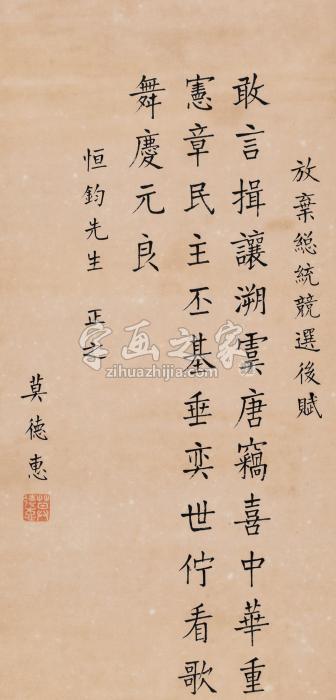 放棄総統競選後賦
敢言揖讓溯虞唐竊喜中華重
憲章民主丕基垂奕世佇看歌
舞慶元良
恒鈞先生 正之
莫德惠
字画之家
zihuazhijia.com